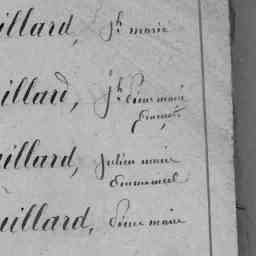 illard, jh marie
illard, jh Pierre marie
uillard, Julien marie
Emmanuel
uillard, Pierre marie